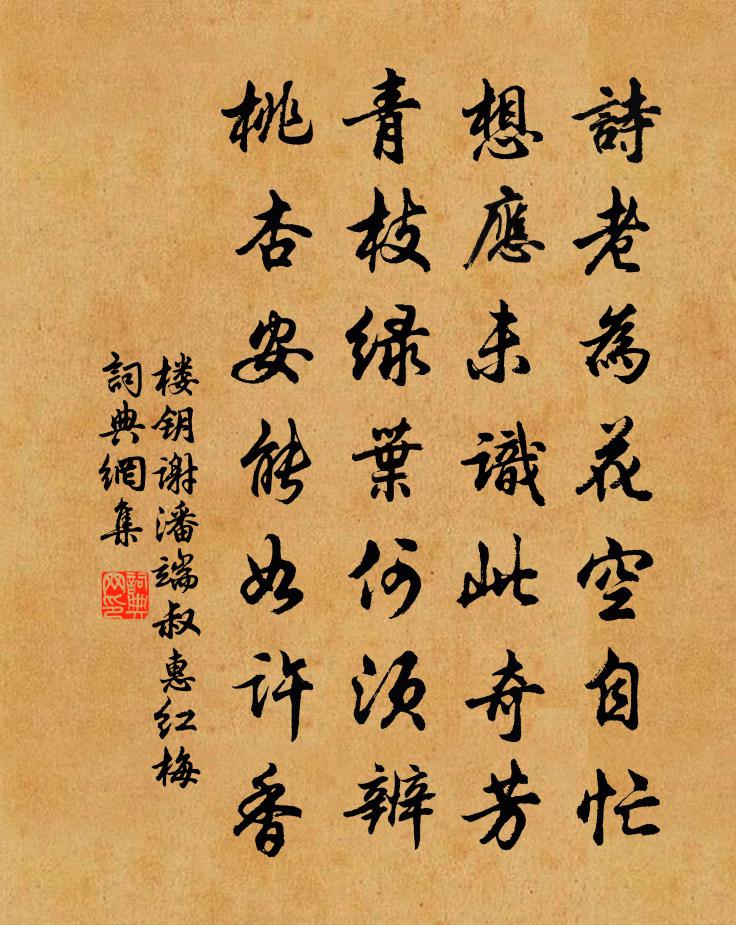 詩老為花空自忙
想應未識此奇芳
青枝綠葉何須辨
桃杏安能如許香
楼钥谢潘端叔惠红梅
詞典網集
詞典网印